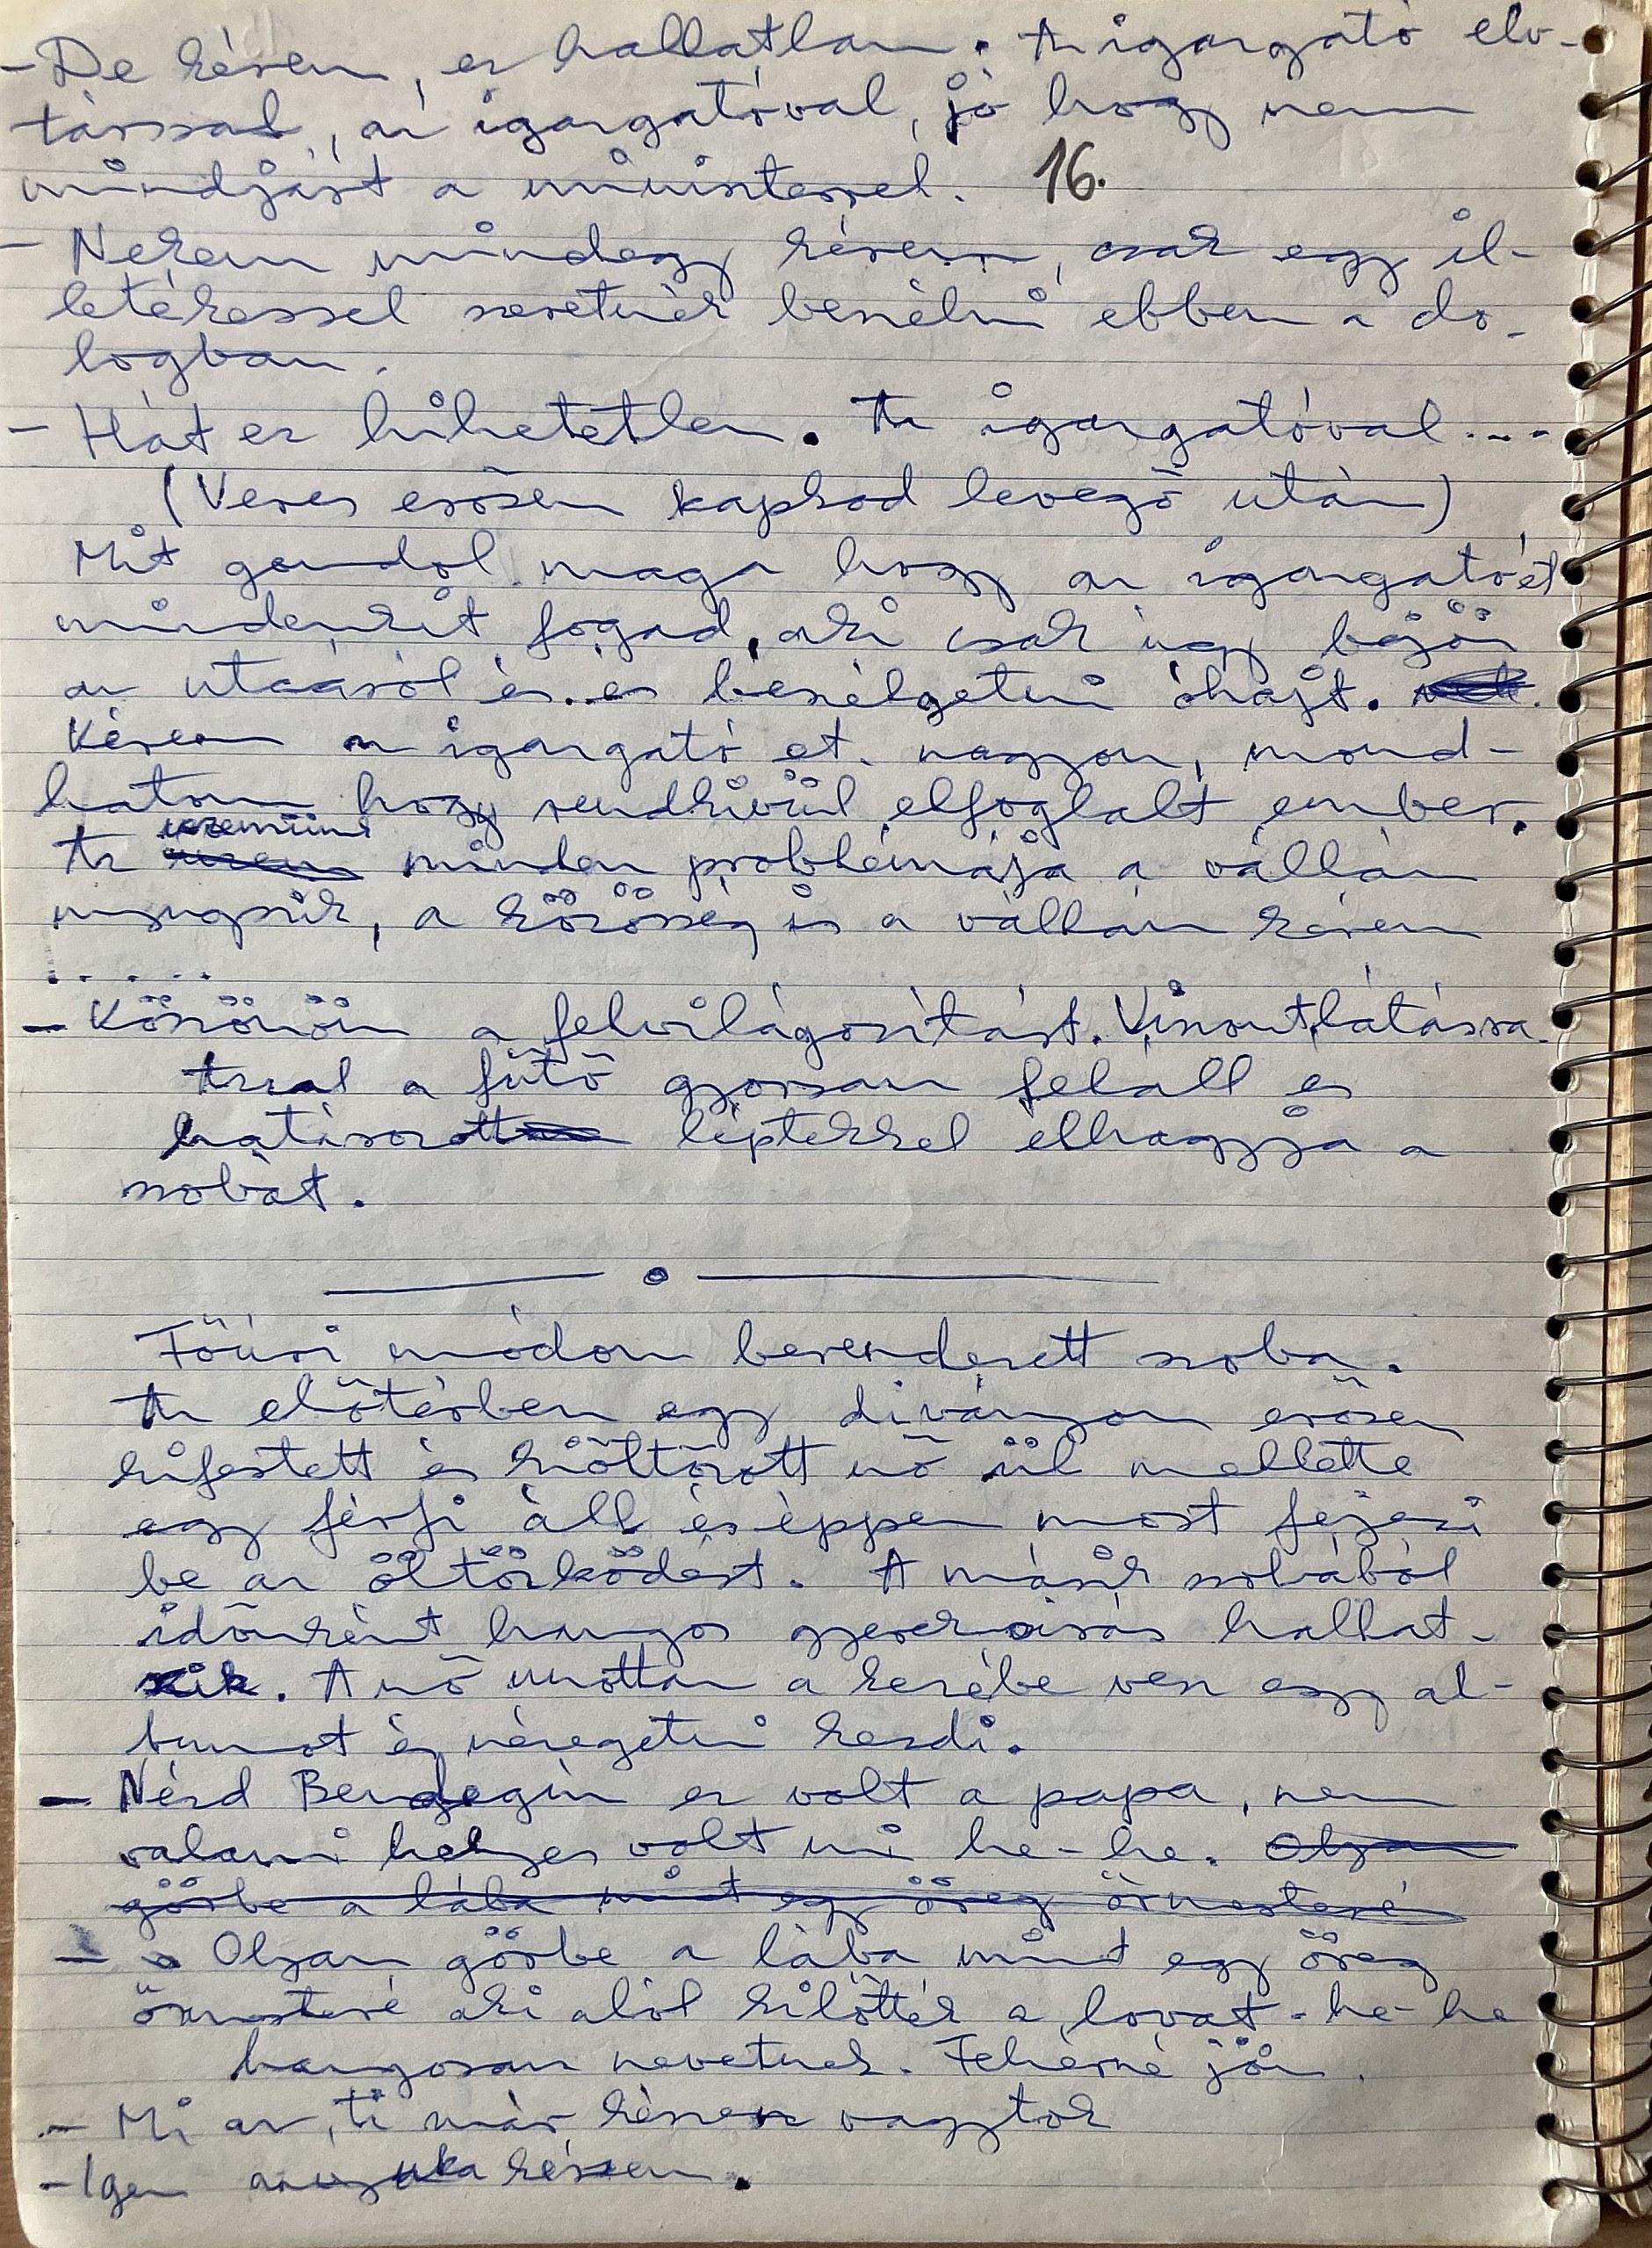 - De kérem, ez hallatlan. Az igazgató elv-
társsal, az igazgatóval, jó hogy nem
mindjárt a miniszterrel. 16.
- Nekem mindegy kérem, csak egy il-
letékessel szeretnék beszélni ebben a do-
logban.
- Hát ez hihetetlen. Az igazgatóval....
(Veres erősen kapkod levegő után)
Mit gondol maga hogy az igazgató et
mindenkit fogad, aki csak úgy bejön
az utcáról és.. és beszélgetni óhajt.
Kérem az igazgató et. nagyon, mond-
hatom hogy rendkívül elfoglalt ember.
üzemünk
Az minden problémája a vállán
nyugszik, a közösség is a vállán kérem
......
- Köszönöm a felvilágosítást. Viszontlátásra.
Azzal a fűtő gyorsan feláll és
határozott léptekkel elhagyja a
szobát.
Főúri módon berendezett szoba.
Az előtérben egy díványon erősen
kifestett és kiöltözött nő ül mellette
egy férfi áll és éppen most fejezi
be az öltözködést. A másik szobából
időnként hangos gyereksírás hallat-
szik. A nő unottan a kezébe vesz egy al-
bumot és nézegetni kezdi.
- Nézd Bendegúz ez volt a papa, nem
valami helyes volt mi he-he. Olyan
görbe a lába mint egy öreg őrmesteré
- Olyan görbe a lába mint egy öreg
őrmesteré aki alól kilőtték a lovat - he-he
hangosan nevetnek. Fehérné jön.
- Mi az, ti már készen vagytok
- Igen anyuka készen.